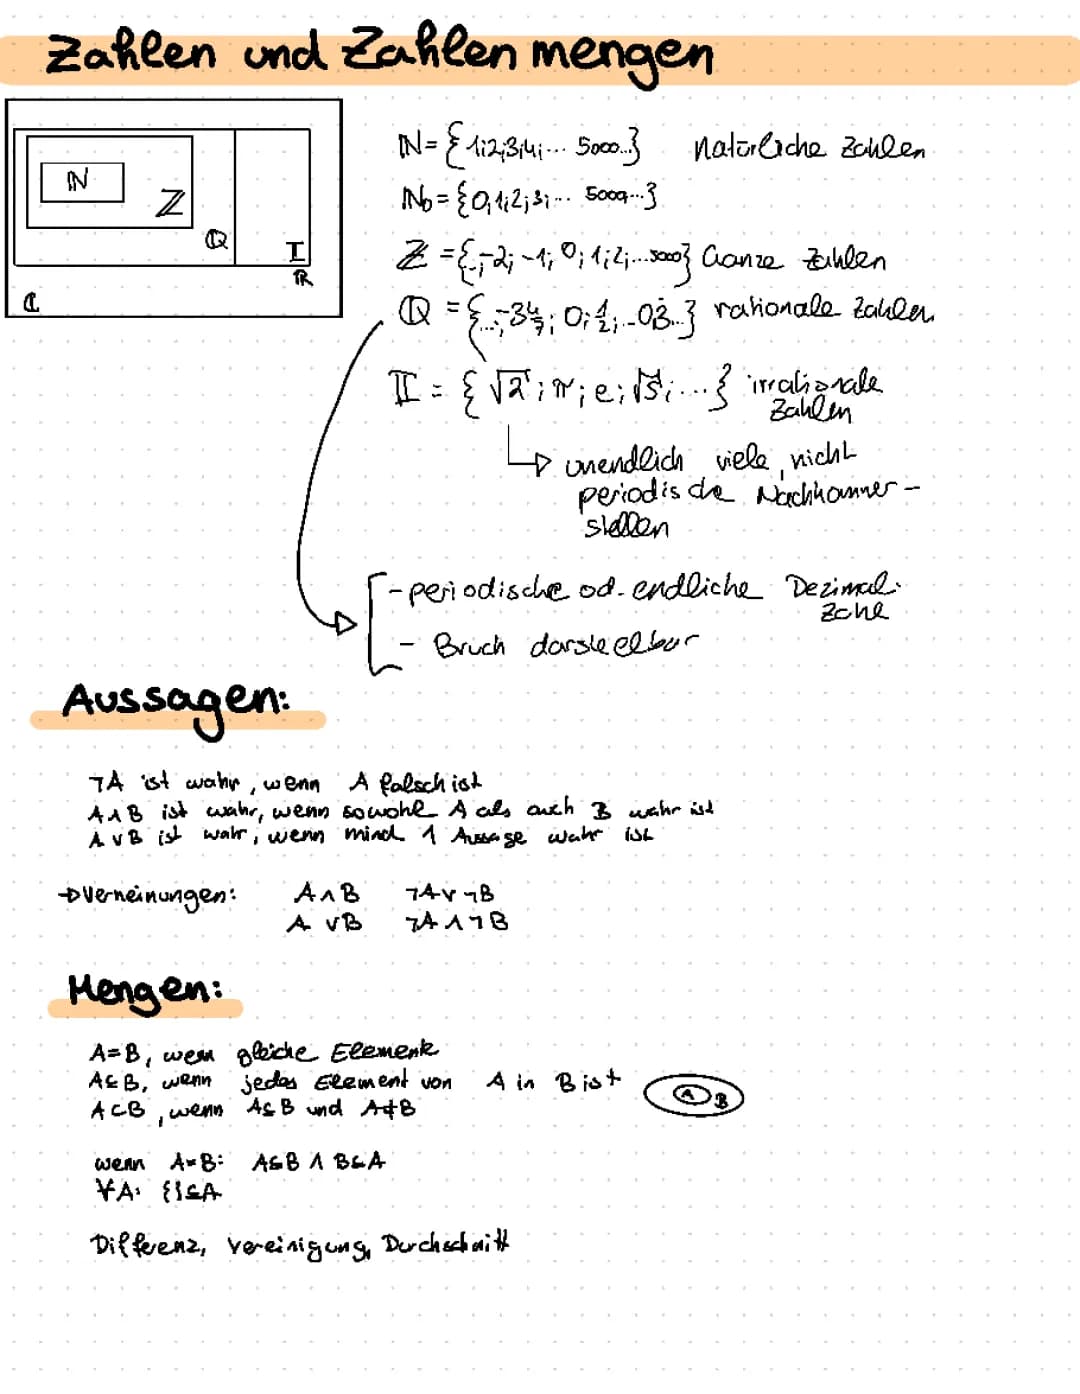 Zahlen und Zahlenmengen
ℕ
Z
ℚ
I
ℝ
ℂ
ℕ = {1;2;3;4;... 5000...} natürliche Zahlen
ℕ₀ = {0;1;2;3;... 5000...}
Z = {...;-2; -1; 0; 1; 2;...5000} Ganze Zahlen
ℚ = {...; -3 4/7; 0; 1/2; ... rationale Zahlen
I = {√2; π; e; √3; ...} irrationale
Zahlen
unendlich viele, nicht
periodische Nachkommer-
stellen
- periodische od. endliche Dezimal-
zahl
- Bruch darstellbar
Aussagen:
¬A ist wahr, wenn A falsch ist
A∧B ist wahr, wenn sowohl A als auch B wahr ist
A∨B ist wahr, wenn mind 1 Aussage wahr ist
→ Verneinungen: A∧B ¬A∨¬B
A∨B ¬A∧¬B
Mengen:
A=B, wenn gleiche Elemente
A⊆B, wenn jedes Element von A in B ist
A B
A⊂B, wenn A⊆B und A≠B
wenn A=B: A⊆B ∧ B⊆A
∀A: {}⊆A
Differenz, Vereinigung, Durchschnitt